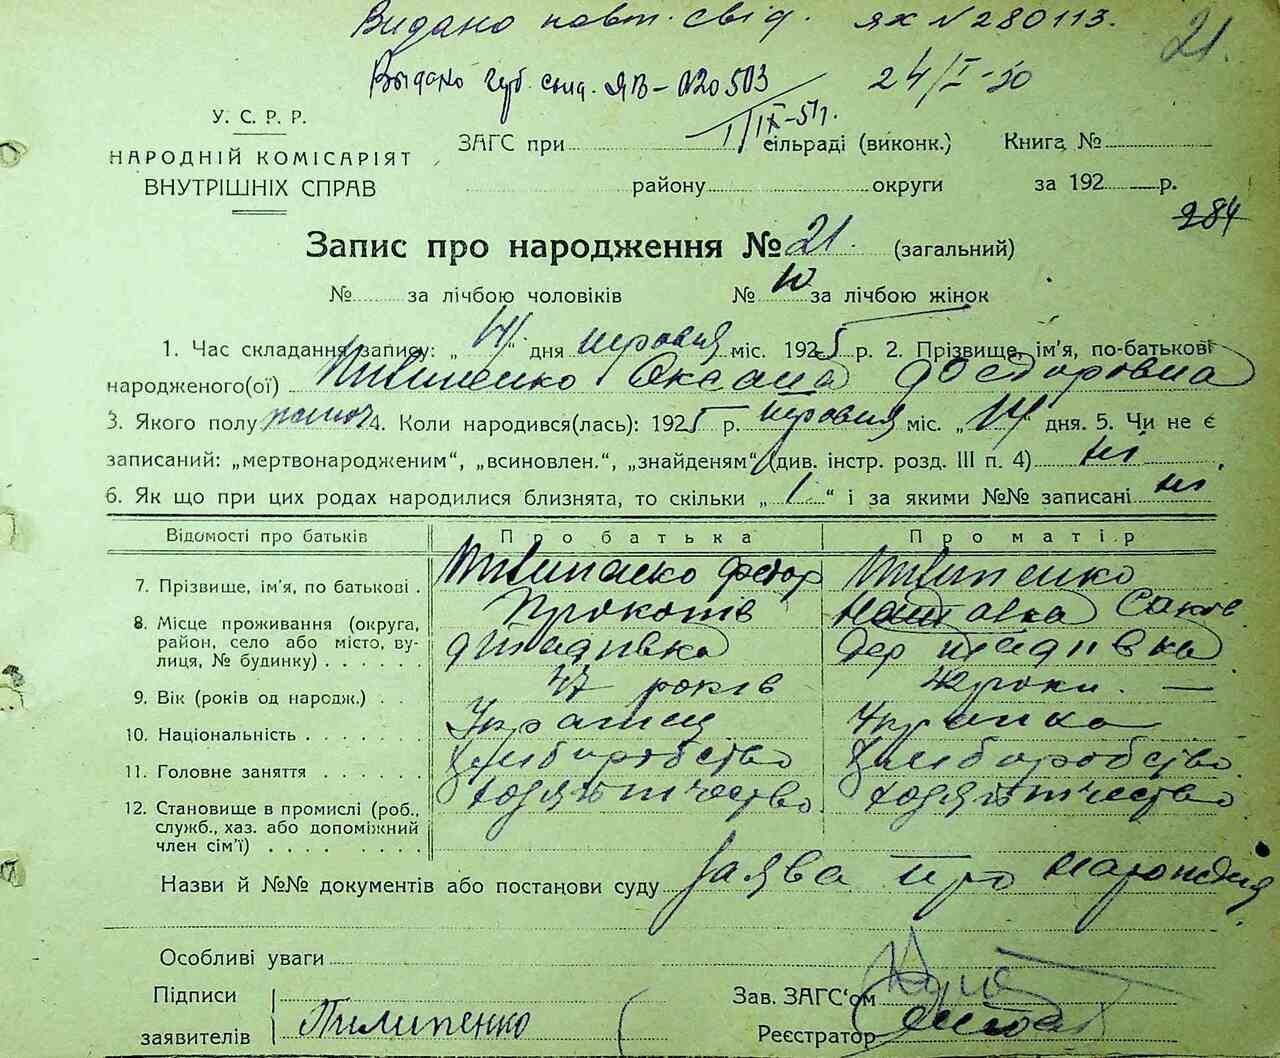 Видано повт. свід. ЯХ N 280113.
21.
Выдано ЯВ-
24/I-30
I/IX-51г.
У. С. Р. Р.
НАРОДНІЙ КОМІСАРІЯТ
ВНУТРІШНІХ СПРАВ
ЗАГС при сільраді (виконк.) Книга №
району округи за 192 р.
284
Запис про народження № 21. (загальний)
№ за лічбою чоловіків № 10 за лічбою жінок
1. Час складання запису: „14“ дня міс. 1925 р. 2. Прізвище, ім’я, по-батькові
народженого(ої) Пилипенко Оксана Федоровна
3. Якого полу жіноч 4. Коли народився(лась): 1925 р. міс. „14“ дня. 5. Чи не є
записаний: „мертвонародженим“, „всиновлен.“, „знайденям“ (див. інстр. розд. III п. 4) ні
6. Як що при цих родах народилися близнята, то скільки „1“ і за якими №№ записані ні
Відомості про батьків Про батька Про матір
7. Прізвище, ім’я, по батькові . Пилипенко Федор Пилипенко
Прокопів
8. Місце проживання (округа,
район, село або місто, ву-
лиця, № будинку) . . . . . .
9. Вік (років од народж.) . . 47 років роки. —
10. Національність . . . . . . Українец Українка
11. Головне заняття . . . . . . хлиборобство хлиборобство
12. Становище в промислі (роб.,
служб., хаз. або допоміжний
член сім’ї) . . . . . . . .
Назви й №№ документів або постанови суду Заява про
Особливі уваги
Підписи
заявителів Пилипенко
Зав. ЗАГС‘ом
Реєстратор